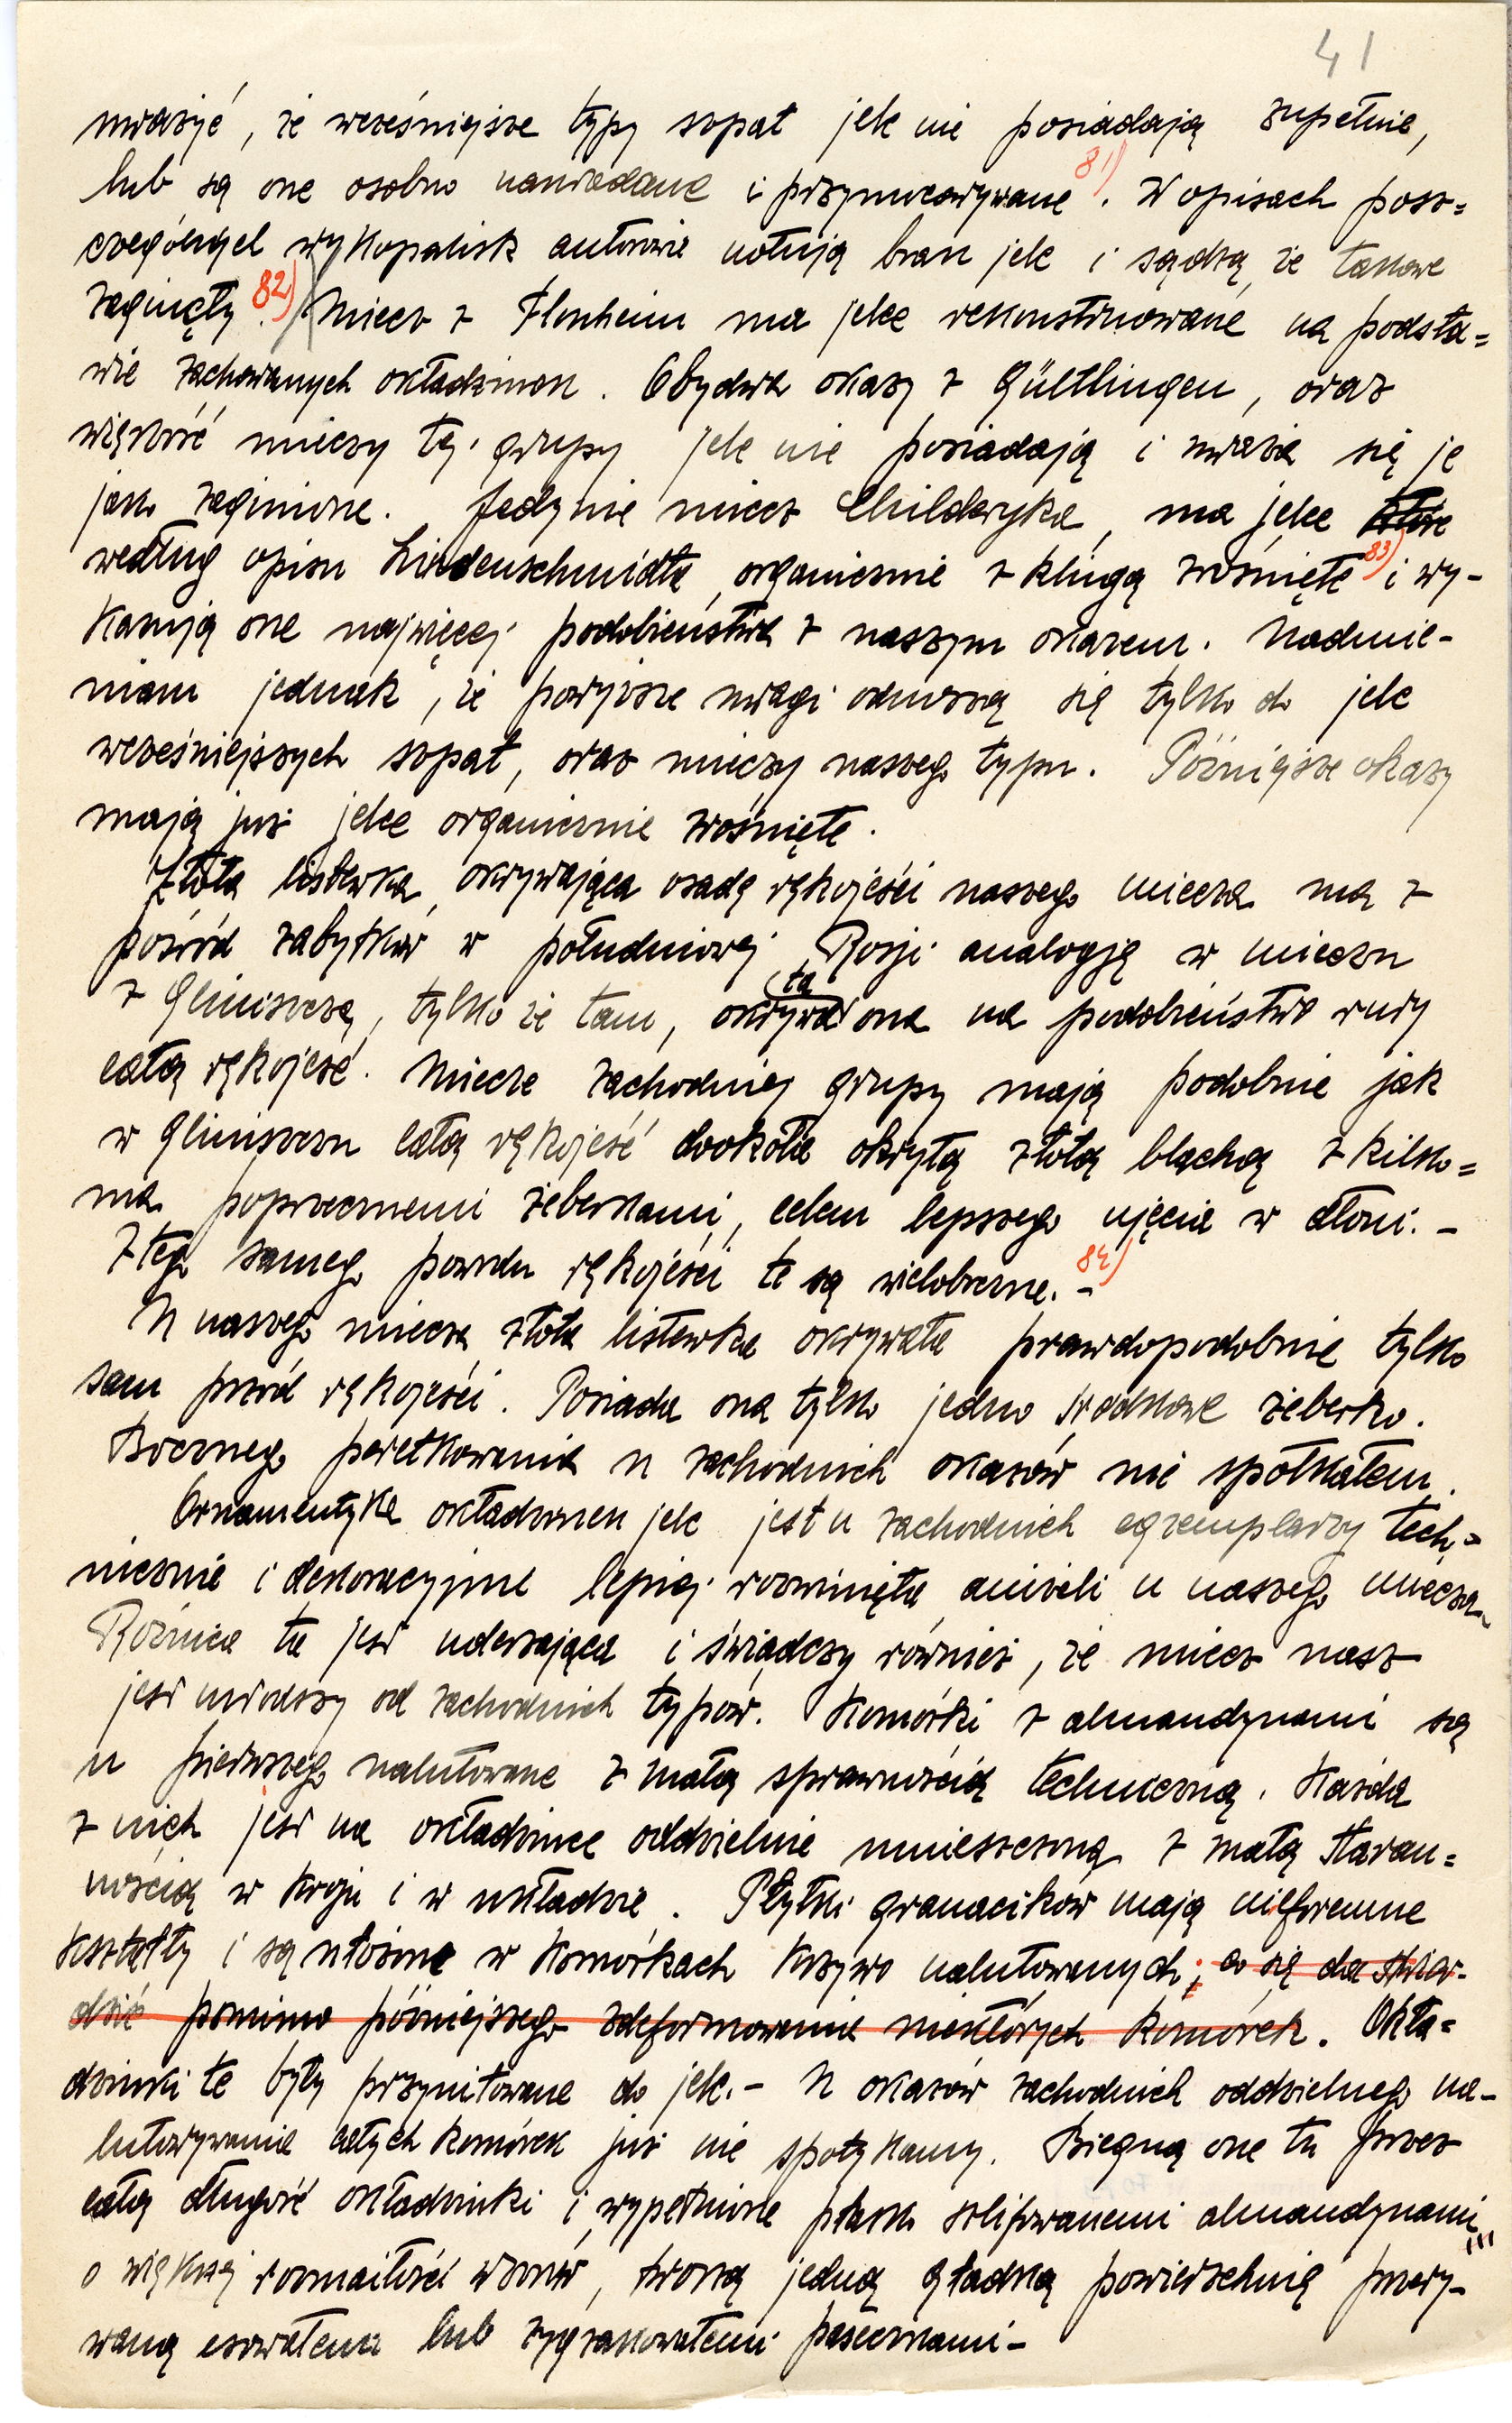 41
uważyć, że wcześniejsze typy szpat jelc nie posiadają zupełnie,
lub są one osobno nawiedane i przymocowywane 81). W opisach posz=
czególnych wykopalisk autorowie notują brak jelc i sądzą, że takowe
zaginęły 82). Miecz z Flonheim ma jelce rekonstruowane na podsta=
wie zachowanych okładzinek. Obydwa okazy z Gültlingen, oraz
większość mieczy tej grupy jelc nie posiadają i uważa się je
jako zaginione. Jedynie miecz Childeryka, ma jelce które
według opisu Lindenschmidta, organicznie z klingą zrośnięte 83) i wy-
kazują one najwięcej podobieństwa z naszym okazem. Nadmie-
niam jednak, że powyższe uwagi odnoszą się tylko do jelc
wcześniejszych szpat, oraz mieczy naszego typu. Późniejsze okazy
mają już jelce organicznie zrośnięte.
Złota listewka, okrywająca osadę rękojeści naszego miecza ma z
pośród zabytków w południowej Rosji analogję w mieczu
z Gliniszcza, tylko że tam, okrywa ta ona na podobieństwo rury
całą rękojeść. Miecze zachodniej grupy mają podobnie jak
w Gliniszczu całą rękojeść dookoła okrytą złotą blachą z kilko=
ma poprzecznemi żeberkami, celem lepszego ujęcia w dłoni. -
Z tego samego powodu rękojeści te są wieloboczne. - 84)
U naszego miecza złota listewka okrywała prawdopodobnie tylko
sam przód rękojeści. Posiada ona tylko jedno środkowe żeberko.
Bocznego perełkowania u zachodnich okazów nie spotkałem.
Ornamentyka okładzinek jelc jest u zachodnich egzemplarzy tech=
nicznie i dekoracyjnie lepiej rozwinięta, aniżeli u naszego miecza.
Różnica ta jest uderzająca i świadczy również, że miecz nasz
jest młodszy od zachodnich typów. Komórki z almandynami są
u pierwszego nalutowane z małą sprawnością techniczną. Każda
z nich jest na okładzince oddzielnie umieszczoną z małą staran=
nością w kroju i w układzie. Płytki granacików mają nieforemne
kształty i są włożone w komórkach krzywo nalutowanych; co się da stwier-
dzić pomimo późniejszego zdeformowania niektórych komórek. Okła=
dzinki te były przynitowane do jelc. - U okazów zachodnich oddzielnego na-
lutowywania całych komórek już nie spotykamy. Biegną one tu przez
całą długość okładzinki i wypełnione płasko szlifowanemi almandynami
o większej rozmaitości wzorów, tworzą jedną gładką powierzchnię przery-
waną esowatemi lub zygzakowatemi pasemkami -